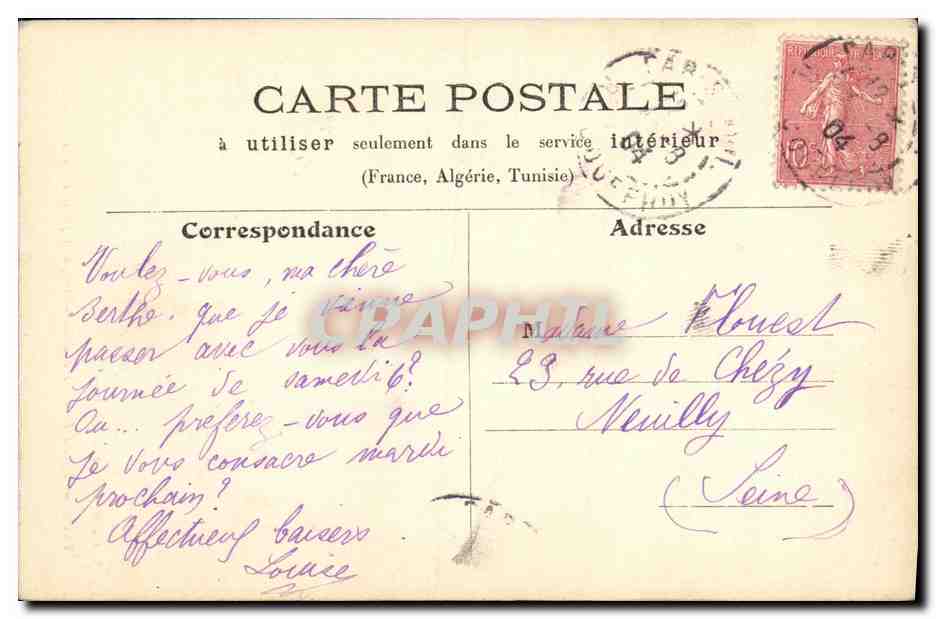 CARTE POSTALE
à utiliser seulement dans le service intérieur
(France, Algérie, Tunisie)
Correspondance
Voulez-vous, ma chère
Berthe. que je vienne
passer avec vous la
journée de samedi 6?
Ou... préferez-vous que
je vous consacre mardi
prochain?
Affectueux baisers
Louise
Adresse
Madame Flouest
23, rue de Chézy
Neuilly
(Seine)
CPAPHIL
04